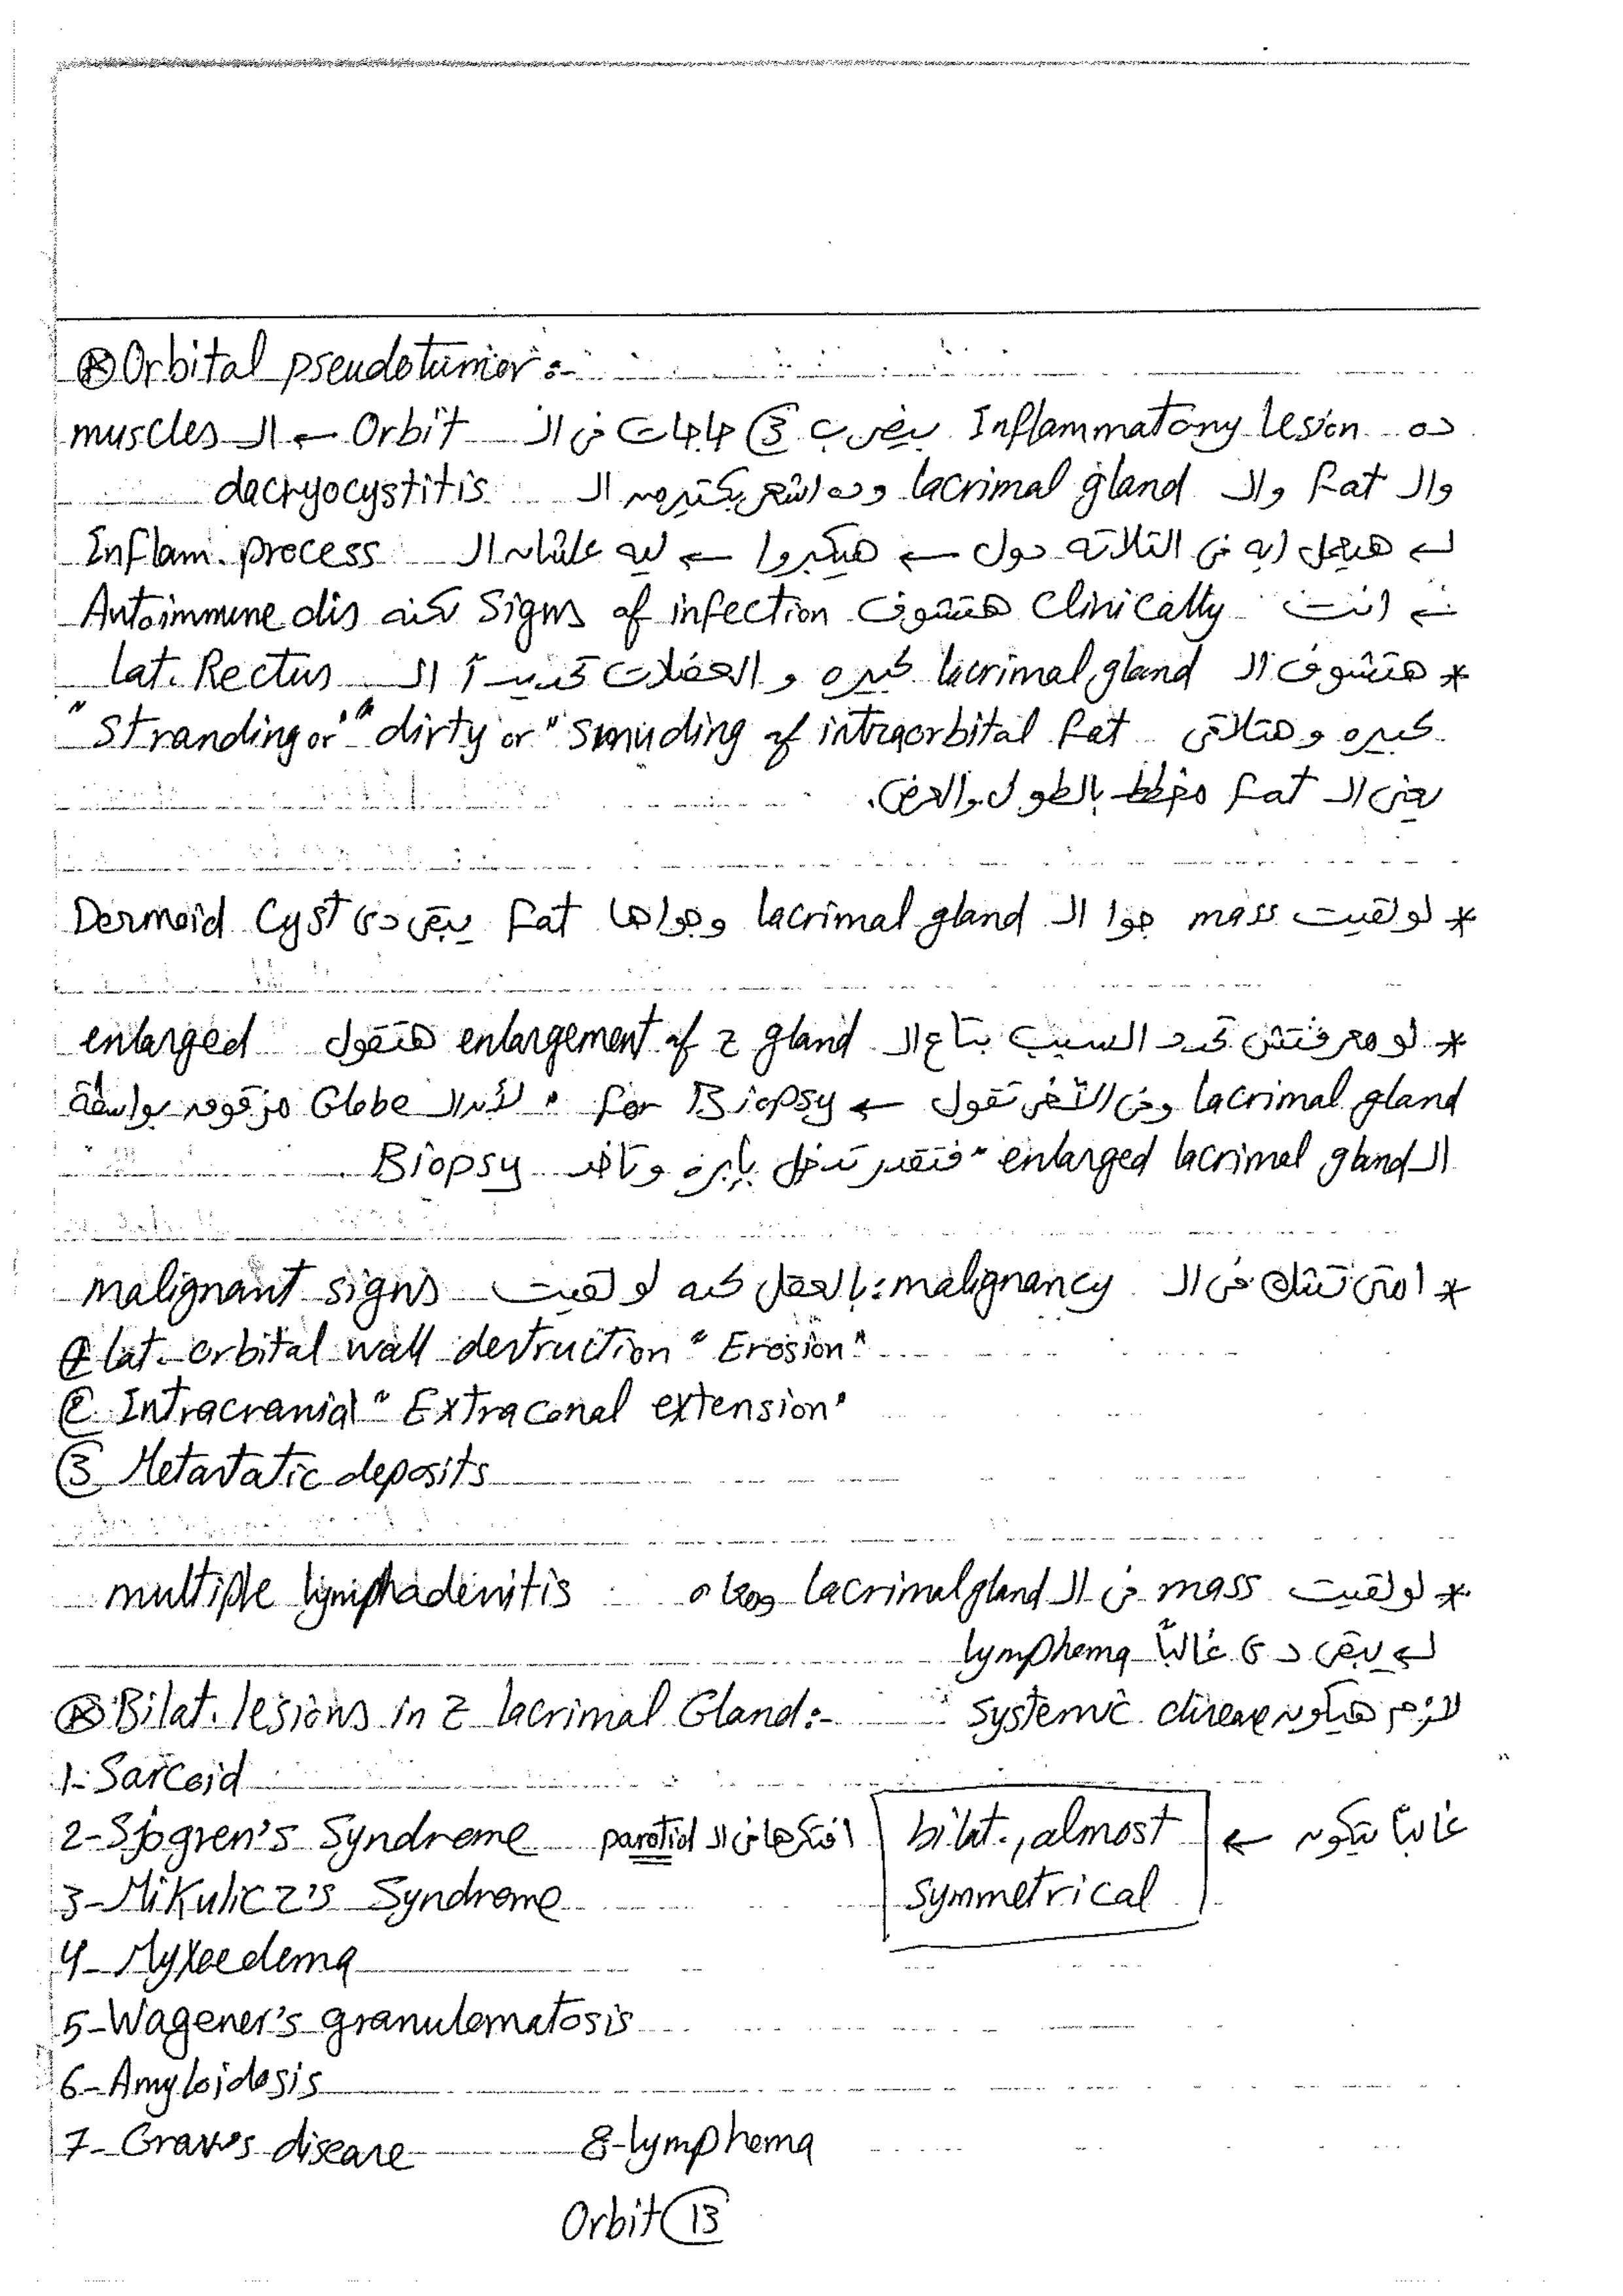 ⊛ Orbital pseudotumor :-
ده Inflammatory lesion بيضرب 3 حاجات فى الـ Orbit ← الـ muscles
والـ fat والـ lacrimal gland وده اشهر بكتير من الـ dacryocystitis
↳ هيعمل ايه فى التلاته دول ← هيكبروا ← ليه علشان الـ Inflam. process
← انت Clinically هتشوف signs of infection لكنه Autoimmune dis
* هتشوف الـ lacrimal gland كبيره و العضلات تحديداً الـ lat. Rectus
كبيره وهتلاقى "stranding or" "dirty or" smuding of intraorbital fat
يعنى الـ fat مخطط بالطول والعرض.
* لو لقيت mass جوا الـ lacrimal gland وجواها fat يبقى دى Dermoid Cyst
* لو معرفتش تحدد السبب بتاع الـ enlargement of z gland هتقول enlarged
lacrimal gland وفى الآخر تقول ← for Biopsy " لأن الـ Globe مزقوقه بواسطة
الـ enlarged lacrimal gland " فتقدر تدخل بإبره وتاخد Biopsy
* امتى تشك فى الـ malignancy : بالعقل كده لو لقيت malignant signs
1 lat. orbital wall destruction "Erosion"
2 Intracranial "Extraconal extension"
3 Metastatic deposits
* لو لقيت mass فى الـ lacrimal gland ومعاه multiple lymphadenitis
↳ يبقى دى غالباً lymphoma
⊛ Bilat. lesions in z lacrimal Gland :- لازم هيكون systemic disease
1- Sarcoid
2- Sjogren's Syndrome افتكرها فى الـ parotid
غالباً بيكون ← bilat., almost
symmetrical
3- Mikulicz's Syndrome
4- Myxoedema
5- Wagener's granulomatosis
6- Amyloidosis
7- Grave's disease 8- lymphoma
Orbit 13